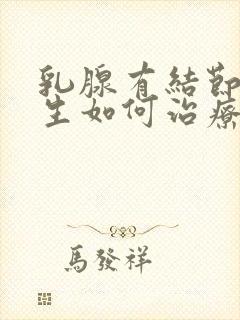 乳腺有結節
生如何治療
馬發祥